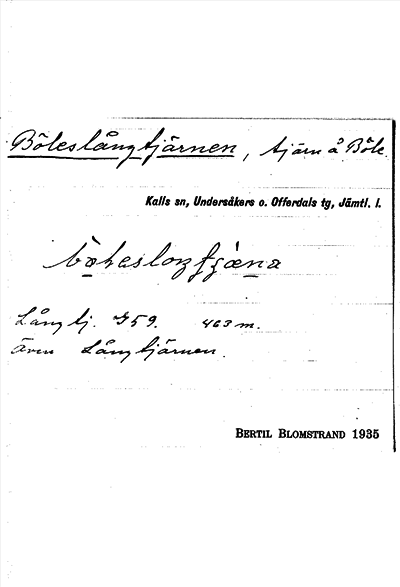 Böleslångtjärnen, tjärn å Böle.
Kalls sn, Undersåkers o. Offerdals tg, Jämtl. l.
Långtj. J59. 463 m.
Även Långtjärnen.
BERTIL BLOMSTRAND 1935